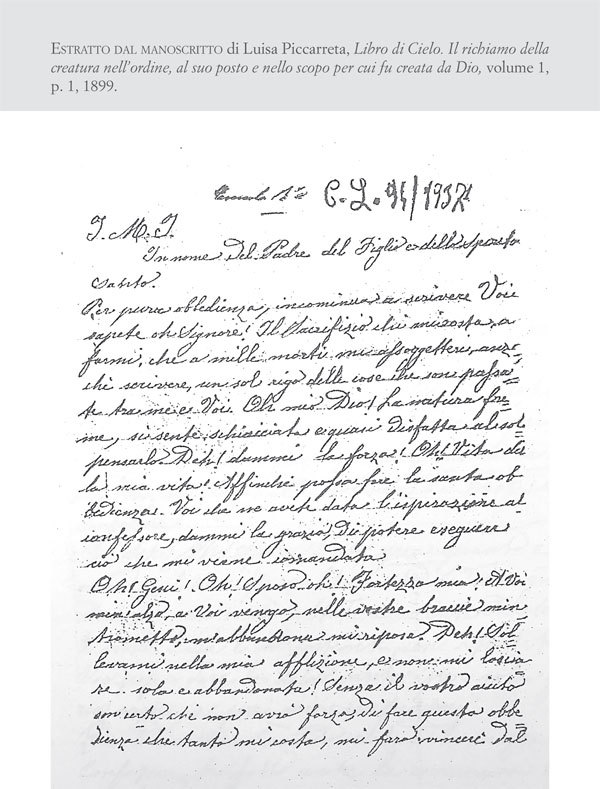 ESTRATTO DAL MANOSCRITTO di Luisa Piccarreta, Libro di Cielo. Il richiamo della
creatura nell'ordine, al suo posto e nello scopo per cui fu creata da Dio, volume 1,
p. 1, 1899.
C. L. 94/1937
J. M. J.
In nome del Padre del Figlio e dello Spirito
Santo.
Per pura obbedienza, incomincio a scrivere Voi
sapete oh Signore! Il Sacrifizio che mi costa, a
farmi, che a mille morti mi assoggetterei, anzi
chè scrivere, un sol rigo delle cose che son passa=
te tra me e Voi. Oh mio Dio! La natura fre=
me, si sente schiacciata e quasi disfatta al sol
pensarlo. Deh! dammi la forza! Oh! Vita del
la mia vita! Affinchè possa fare la santa ob
bedienza! Voi che ne avete data l'ispirazione al
confessore, dammi la grazia, di potere eseguire
ciò che mi viene comandato
Oh! Gesù! Oh! Sposo oh! Fortezza mia: A Voi
m'inalzo, a Voi vengo, nelle vostre braccie m'in
trometto, m'abbandono mi riposo. Deh! Sol
levami nella mia afflizione, e non mi lascia
re sola e abbandonata! Senza il vostro aiuto
son certo che non avrò forza, di fare questa obbe
dienza che tanto mi costa, mi farò vincere dal